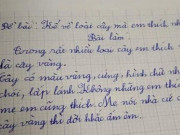 Đề bài: Kể về loài cây mà em thích nh
Bài làm.
Trong rất nhiều loại cây em thích
là cây vừng.
Cây có màu vàng, cứng hình chữ nh
chói, lấp lánh. Không những em thí
mẹ em cũng thích. Mẹ nói nhà cứ c
cây vàng thì đời khắc ấm êm.